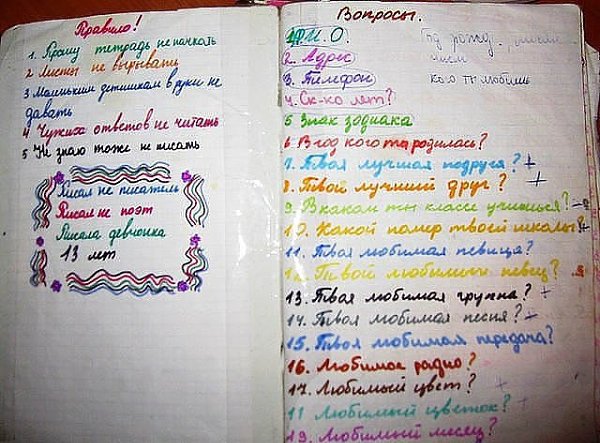 Правило!
1. Прошу тетрадь не пачкать
2 Листы не вырывать
3 Маленьким детишкам в руки не
давать
4 Чужих ответов не читать
5 Не знаю тоже не писать
Писал не писатель
Писал не поэт
Писала девчонка
13 лет
Вопросы.
Ф.И.О.
2. Адрес
3. Телефон
4. Ск-ко лет?
5 Знак зодиака
6 В год кого ты родилась?
7. Твоя лучшая подруга? +
8. Твой лучший друг? +
9. В каком ты классе учишься?
10. Какой номер твоей школы? +
11. Твоя любимая певица?
12. Твой любимый певец?
13. Твоя любимая группа? +
14. Твоя любимая песня? +
15. Твоя любимая передача?
16. Любимое радио?
17. Любимый цвет? +
11 Любимый цветок? +
19. Любимый месяц?
год рожд.
кого ты любишь